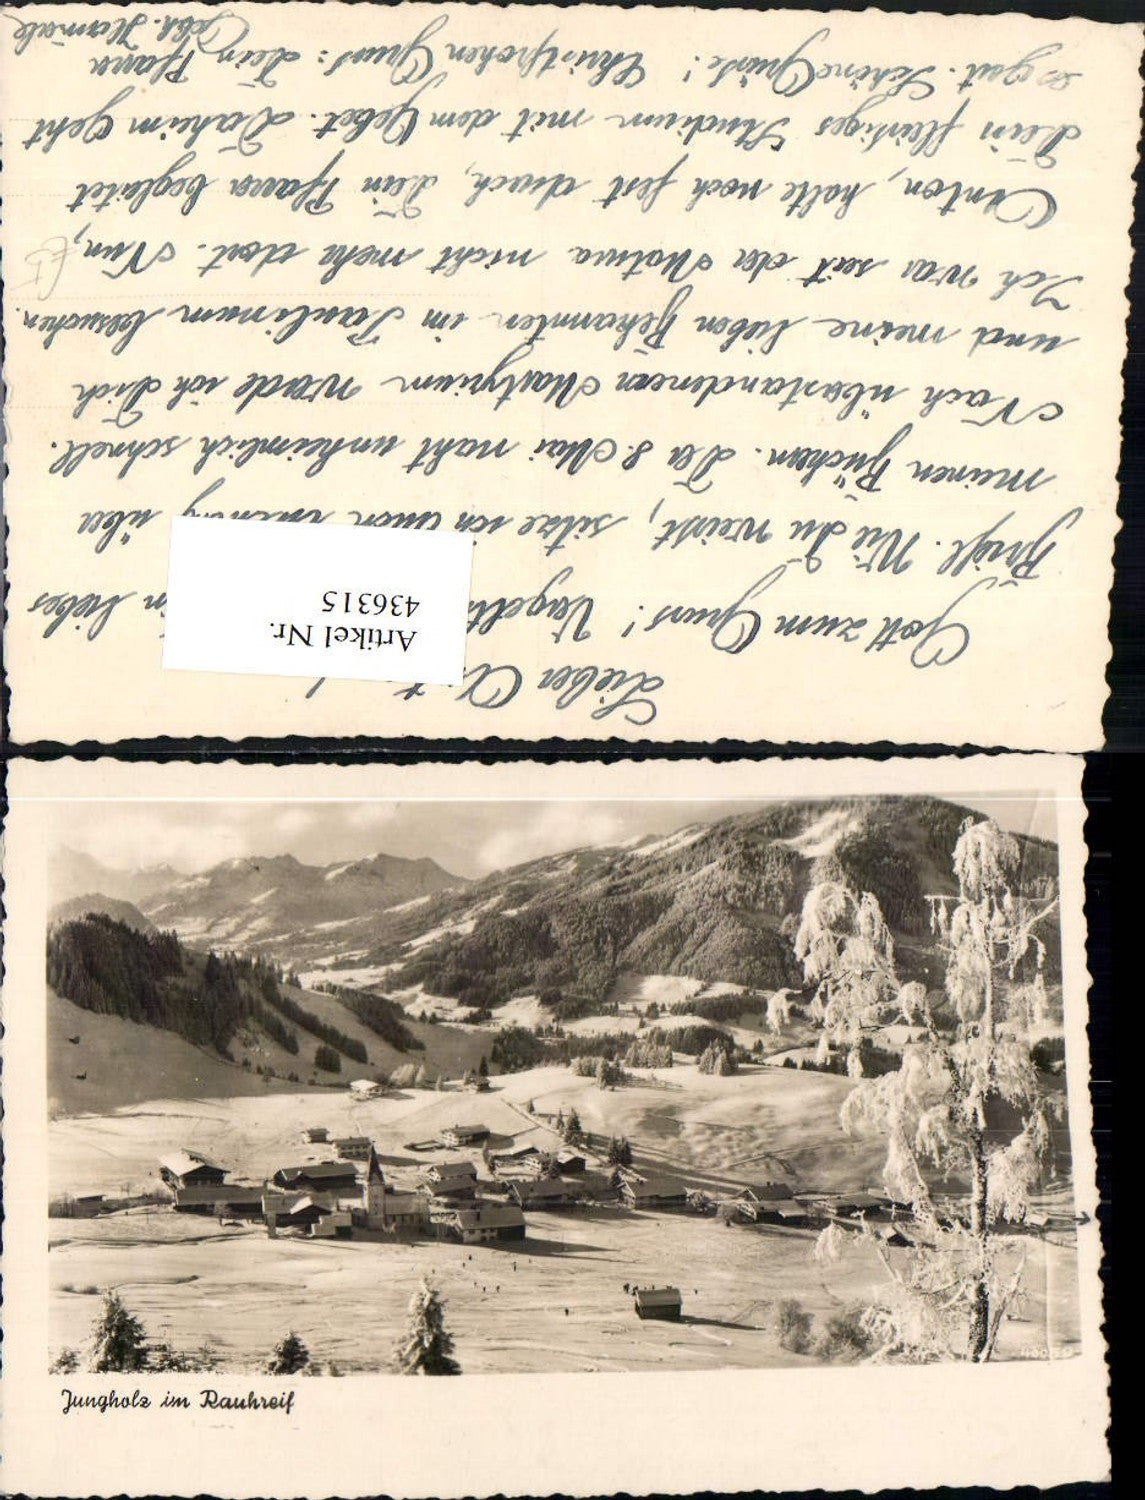 Lieber
Gott zum Gruss! Vergelts liebes
Briefl. Wie Du weißt, sitze ich über
meinen Büchern. Der 8. Mai naht unheimlich schnell.
Nach überstandenem Martyrium werde ich Dich
und meine lieben Bekannten im Paulinum besuchen.
Ich war seit der Matura nicht mehr dort. Nun,
Anton, halte noch fest durch, Dein Pfarrer begleitet
Dein fleißiges Studium mit dem Gebet. Daheim geht
es gut. Schöne Grüße! Christfrohen Gruss: Dein Pfarrer
Gebh.
Artikel Nr.
436315
Jungholz im Rauhreif